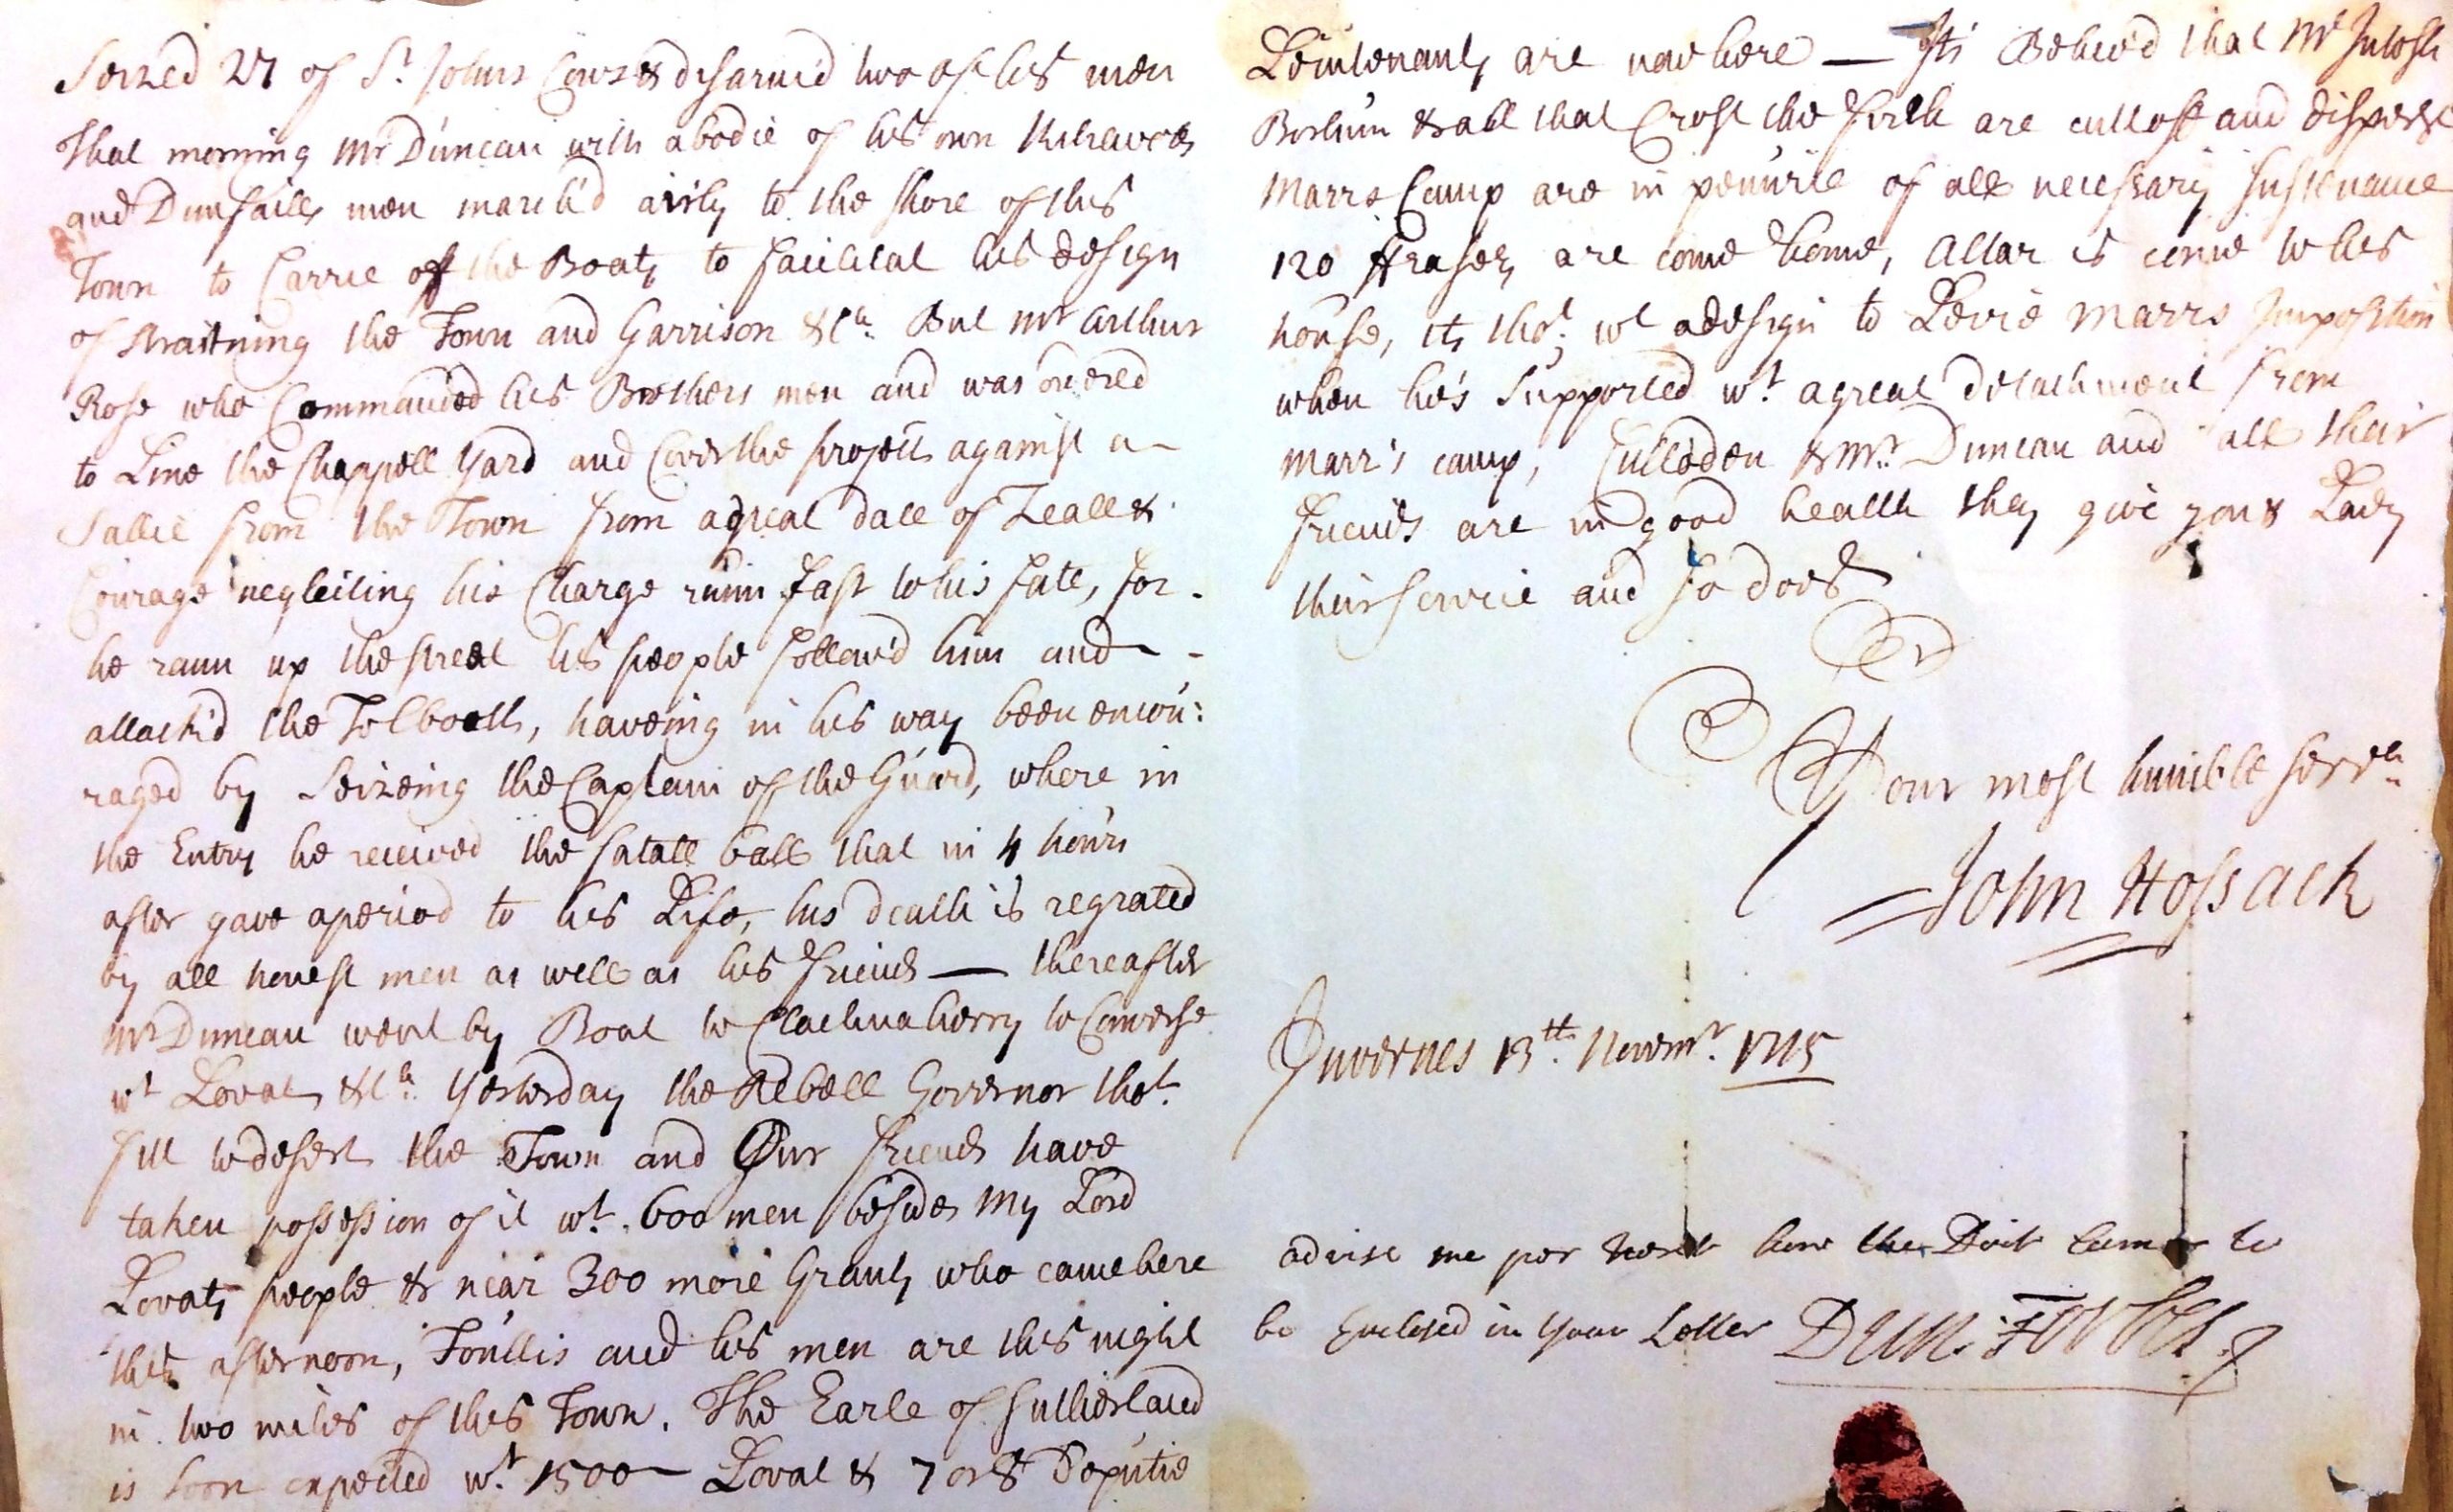 Seized 27 of St Johns Cows & disarm'd two of his men
That morning Mr Duncan with a bodie of his own Kilravocks
and Dunfails men march'd airly to the shore of this
Town to Carrie off the Boats to facilitat his design
of straitning the Town and Garrison &ca. But Mr Arthur
Rose who Commanded his Brothers men and was ordered
to Line the Chappell Yard and Cover the project against a
Sallie from the Town from a great dale of Zeall &
Courage neglecting his Charge runn fast to his fate, for
he rann up the street his people follow'd him and
attack'd the Tolbooth, haveing in his way been encou:
raged by Seizeing the Captain of the Guard, where in
the Entry he received the fatall ball that in 4 hours
after gave a period to his Life, his death is regrated
by all honest men as well as his friends — thereafter
Mr Duncan went by Boat to Clachnaherry to Converse
wt Lovat, &ca. Yesterday the Rebell Governor thot.
fitt to desert the Town and Our friends have
taken possession of it wt. 600 men besides My Lord
Lovats people & near 300 more Grants who came here
this afternoon, Foullis and his men are this night
in two miles of this Town. The Earle of Sutherland
is soon expected wt. 1500 — Lovat & 7 or 8 Deputie
Lewtenants are now here — Its Believ'd that Mc Intosh
Borlum & all that Crost the firth are cutt off and disperst
Marrs Camp are in penurie of all necessary sustenance
120 Frasers are come home, Altar is come to his
house, its thot. wt a design to Levie Marrs Imposition
when he's Supported wt. a great detachment from
Marr's camp, Culloden & Mr. Duncan and all their
friends are in good health they give you & Lady
their service and so does
Sr
Your most humble servt.
John Hossack
Invernes 13th. Novemr. 1715
advise me per next how the Doit came to
be Enclosed in your Letter Dun: Forbes